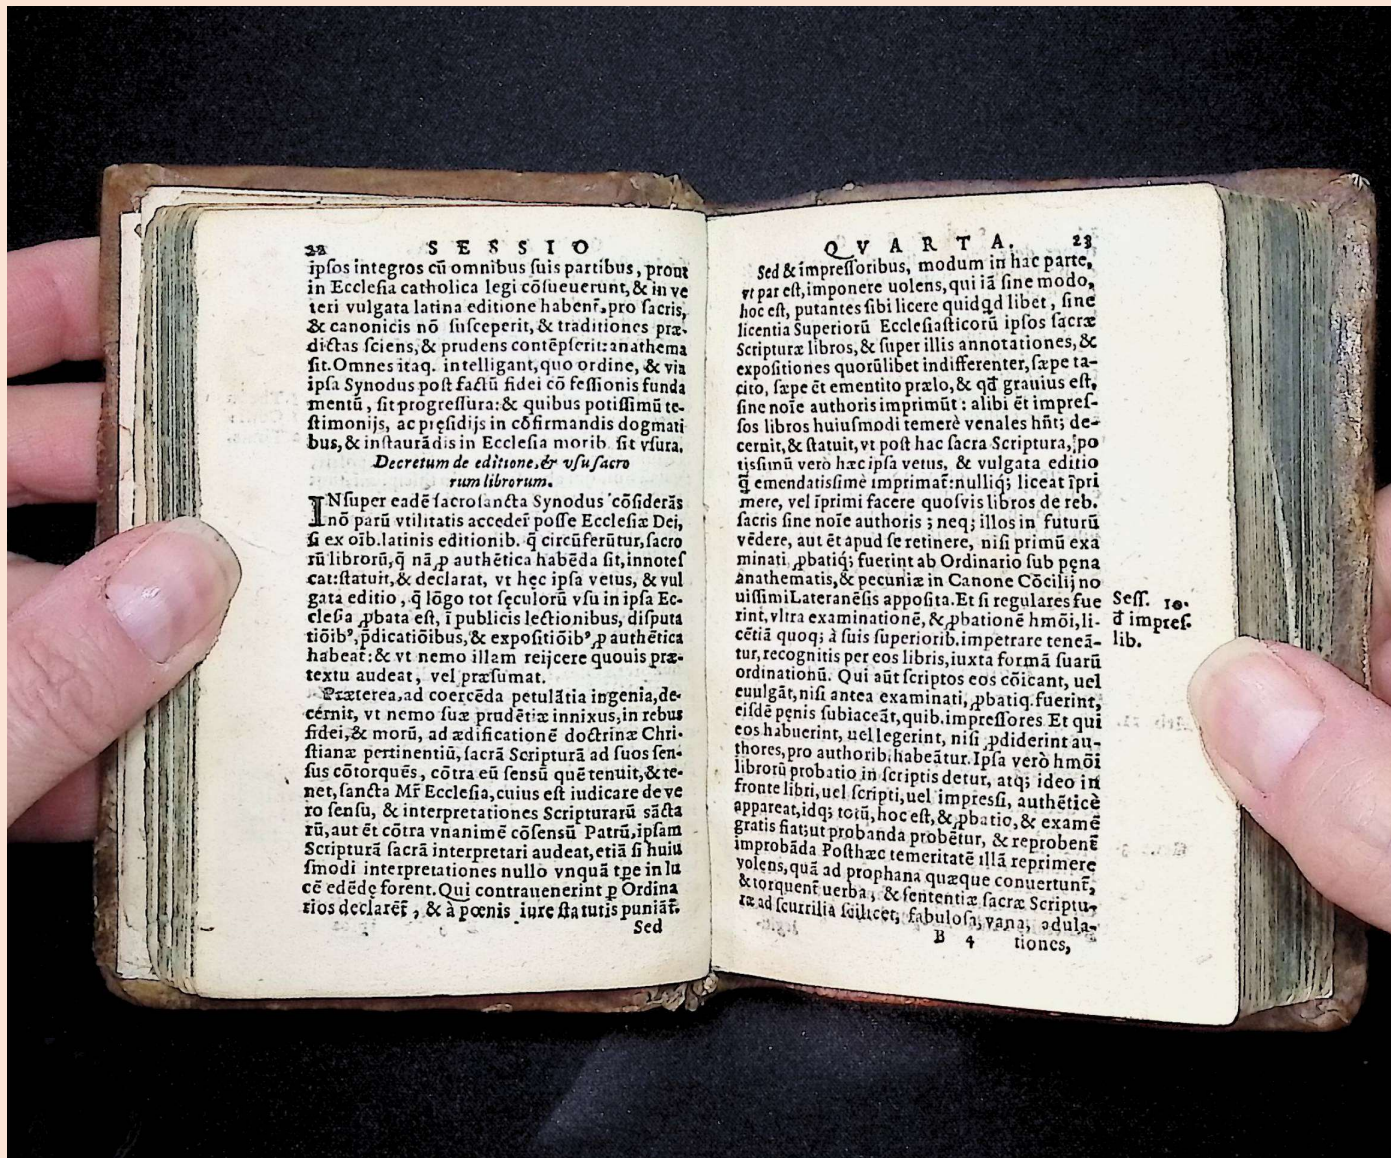 22 SESSIO
ipſos integros cū omnibus ſuis partibus, prout
in Eccleſia catholica legi cōſueuerunt, & in ve
teri vulgata latina editione habenr̄, pro ſacris,
& canonicis nō ſuſceperit, & traditiones præ-
dictas ſciens, & prudens contēpſerit: anathema
ſit. Omnes itaq. intelligant, quo ordine, & via
ipſa Synodus poſt factū fidei cō feſſionis funda
mentū, ſit progreſſura: & quibus potiſſimū te-
ſtimonijs, ac pręſidijs in cōfirmandis dogmati
bus, & inſtaurādis in Eccleſia morib. ſit vſura.
Decretum de editione, & vſu ſacro
rum librorum.
INſuper eadē ſacroſancta Synodus cōſiderās
nō parū vtilitatis acceder̄ poſſe Eccleſiæ Dei,
ſi ex oīb. latinis editionib. q̄ circūferūtur, ſacro
rū librorū, q̄ nā ꝓ authētica habēda ſit, innoteſ
cat: ſtatuit, & declarat, vt hęc ipſa vetus, & vul
gata editio, q̄ lōgo tot ſęculorū vſu in ipſa Ec-
cleſia ꝓbata eſt, ī publicis lectionibus, diſputa
tiōibꝰ, p̄dicatiōibus, & expoſitiōibꝰ, ꝓ authētica
habeat̄: & vt nemo illam reijcere quouis præ-
textu audeat, vel præſumat.
Præterea, ad coercēda petulātia ingenia, de-
cernit, vt nemo ſuæ prudētiæ innixus, in rebus
fidei, & morū, ad ædificationē doctrinæ Chri-
ſtianæ pertinentiū, ſacrā Scripturā ad ſuos ſen-
ſus cōtorquēs, cōtra eū ſenſū quē tenuit, & te-
net, ſancta Mr̄ Eccleſia, cuius eſt iudicare de ve
ro ſenſu, & interpretationes Scripturarū sācta
rū, aut ēt cōtra vnanimē cōſensū Patrū, ipſam
Scripturā ſacrā interpretari audeat, etiā ſi huiu
ſmodi interpretationes nullo vnquā tp̄e in lu
cē edēdę forent. Qui contrauenerint ꝑ Ordina
rios declarēt̄, & à pœnis iure ſtatutis puniāt̄.
Sed
QVARTA. 23
Sed & impreſſoribus, modum in hac parte,
vt par eſt, imponere uolens, qui iā ſine modo,
hoc eſt, putantes ſibi licere quidqd libet, ſine
licentia Superiorū Eccleſiaſticorū ipſos ſacræ
Scripturæ libros, & ſuper illis annotationes, &
expoſitiones quorūlibet indifferenter, ſæpe ta-
cito, ſæpe ēt ementito prælo, & qđ grauius eſt,
ſine noīe authoris imprimūt: alibi ēt impreſ-
ſos libros huiuſmodi temerè venales hn̄t; de-
cernit, & ſtatuit, vt poſt hac ſacra Scriptura, po
tiſſimū verò hæc ipſa vetus, & vulgata editio
q̄ emendatiſſimè imprimat̄: nulliq; liceat īpri
mere, vel īprimi facere quoſvis libros de reb.
ſacris ſine noīe authoris; neq; illos in futurū
vēdere, aut ēt apud ſe retinere, niſi primū exa
minati, ꝓbatiq; fuerint ab Ordinario ſub pęna
anathematis, & pecuniæ in Canone Cōcilij no
uiſſimi Lateranēſis appoſita. Et ſi regulares fue
rint, vltra examinationē, & ꝓbationē hmōi, li-
cētiā quoq; à ſuis ſuperiorib. impetrare teneā-
tur, recognitis per eos libris, iuxta formā ſuarū
ordinationū. Qui aūt ſcriptos eos cōicant, uel
euulgāt, niſi antea examinati, ꝓbatiq. fuerint,
eiſdē pęnis ſubiaceāt, quib. impreſſores. Et qui
eos habuerint, uel legerint, niſi ꝓdiderint au-
thores, pro authorib. habeātur. Ipſa verò hmōi
librorū probatio in ſcriptis detur, atq; ideo in
fronte libri, uel ſcripti, uel impreſſi, authēticè
appareat, idq; totū, hoc eſt, & ꝓbatio, & examē
gratis fiat; ut probanda probētur, & reprobent̄
improbāda. Poſthæc temeritatē illā reprimere
volens, quā ad prophana quæque conuertunt̄,
& torquent̄ uerba, & ſententiæ ſacræ Scriptu-
ræ ad ſcurrilia ſcilicet, fabuloſa, vana, adula-
B 4 tiones,
Seſſ. 10.
đ impreſ.
lib.